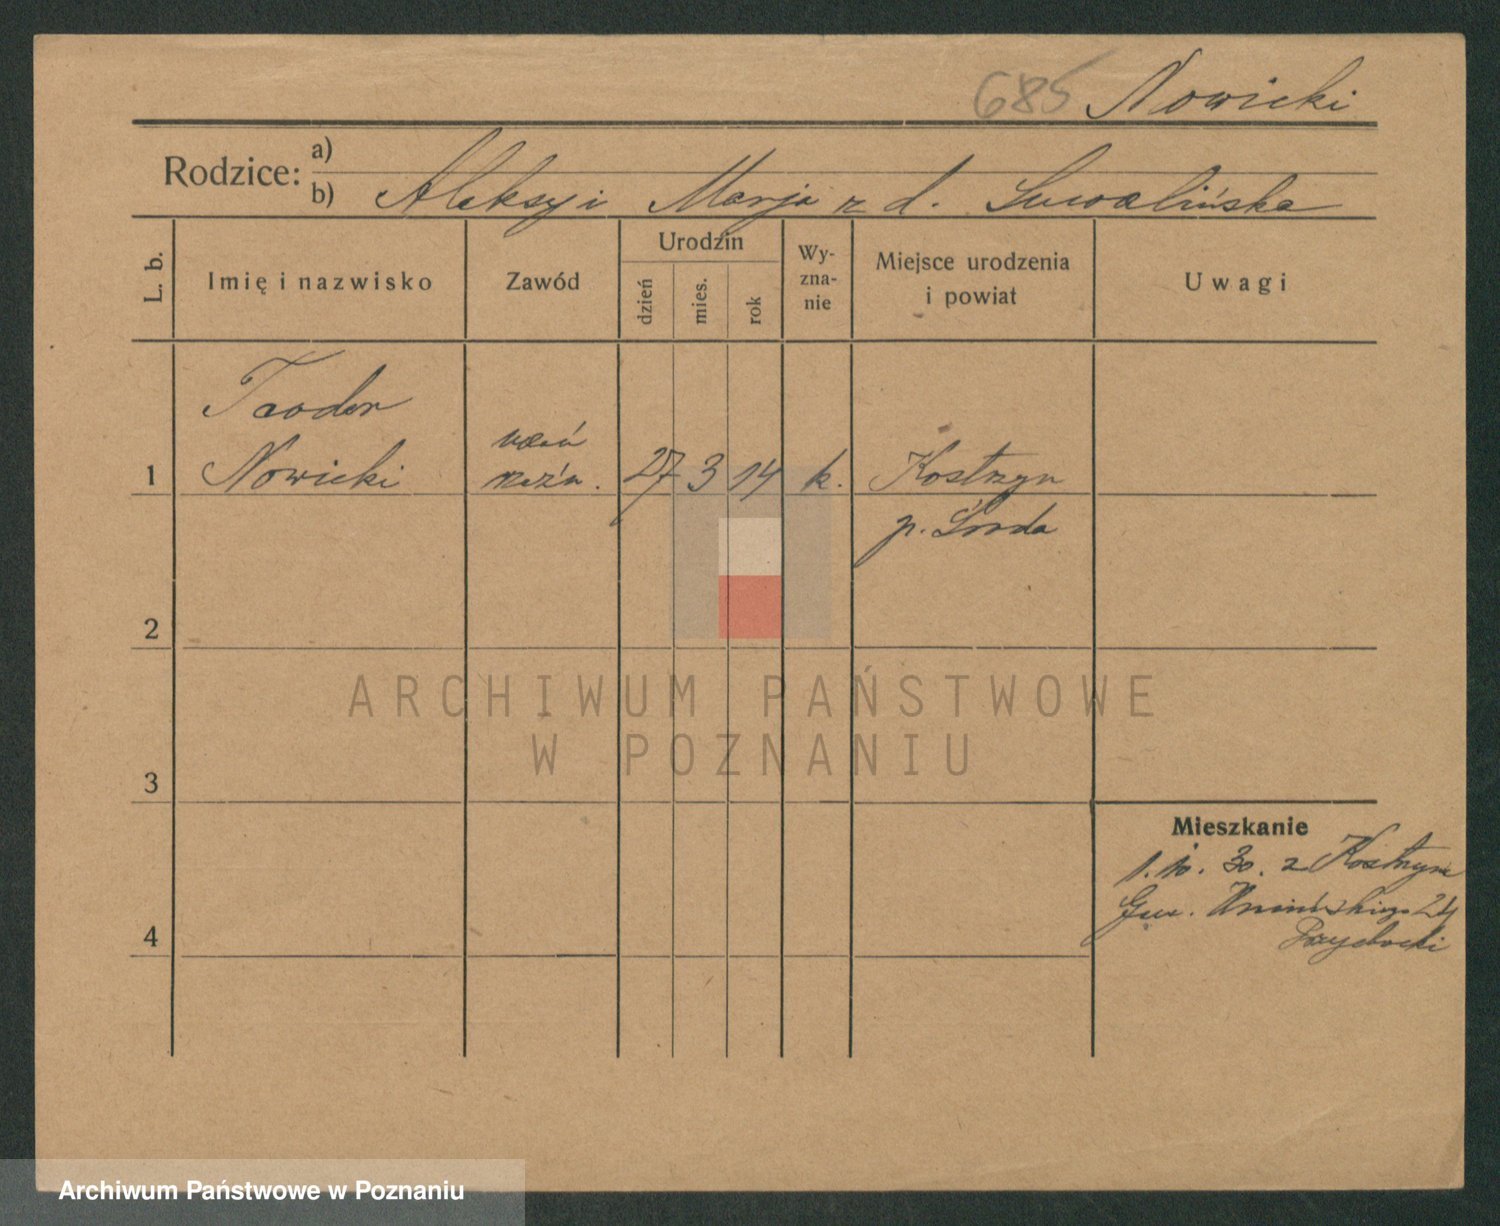 685 Nowicki
Rodzice: a)
b) Aleksy i Marja z d. Suwalińska
L. b.
Imię i nazwisko
Zawód
Urodzin
dzień
mies.
rok
Wy-
zna-
nie
Miejsce urodzenia
i powiat
Uwagi
Teodor
uczeń
1 Nowicki rzeźn. 27 3 14 k. Kostrzyn
p. Środa
2
3
4
ARCHIWUM PAŃSTWOWE
W POZNANIU
Mieszkanie
1. 10. 30. z Kostrzyn
24
Przybecki
Archiwum Państwowe w Poznaniu